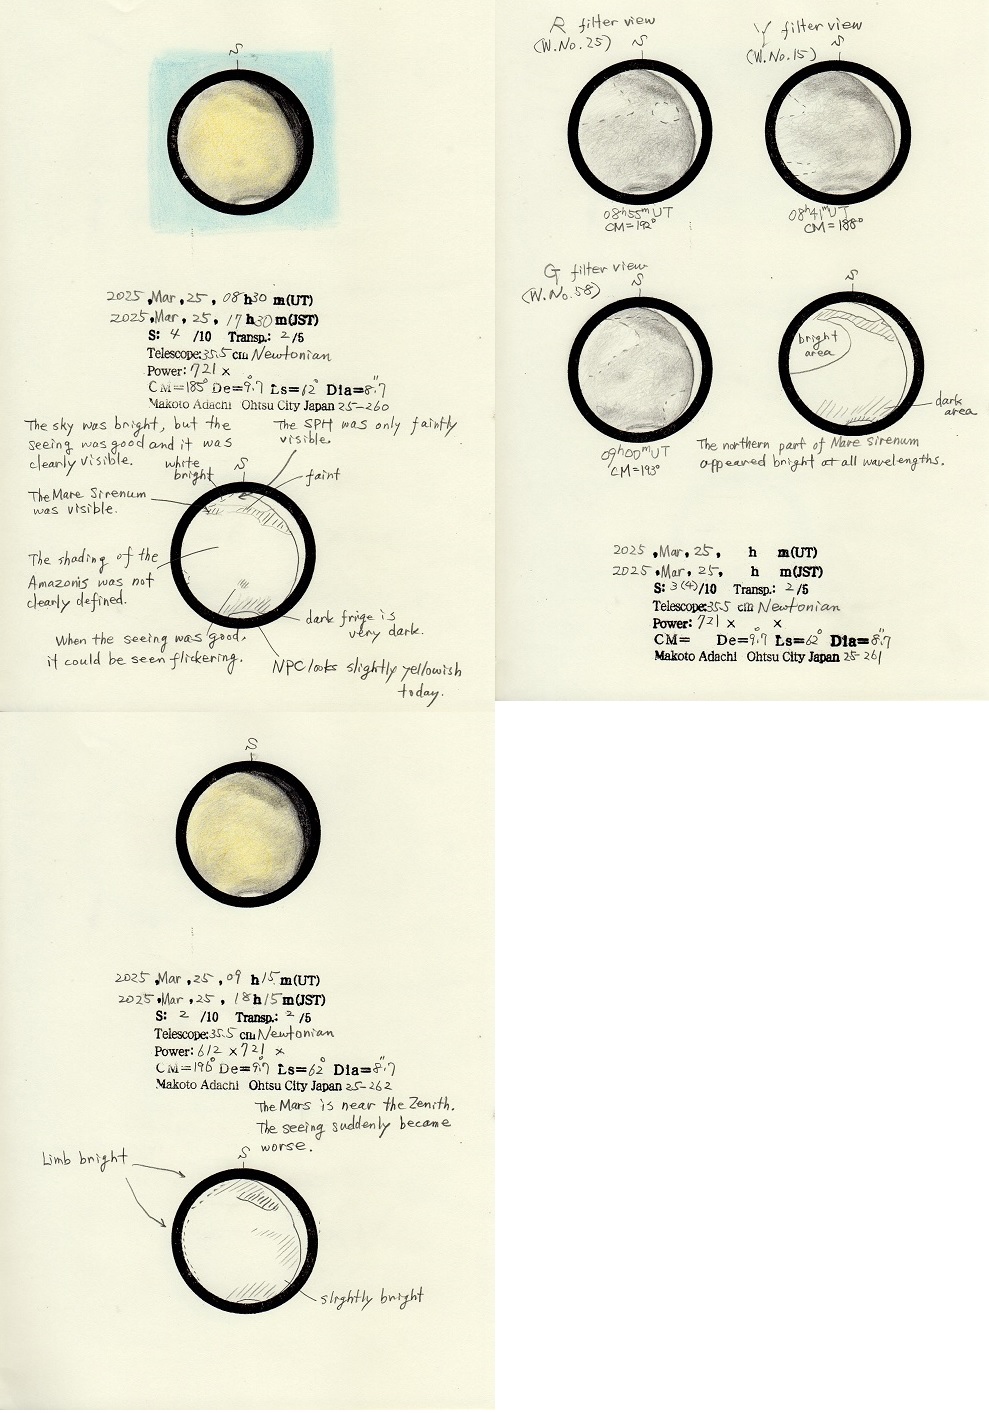 S
2025 , Mar , 25 , 08 h 30 m(UT)
2025 , Mar , 25 , 17 h 30 m(JST)
S: 4 /10 Transp.: 2 /5
Telescope: 35.5 cm Newtonian
Power: 721 ×
CM=185° De=9.°7 Ls=62° Dia=8."7
Makoto Adachi Ohtsu City Japan 25-260
The sky was bright, but the
seeing was good and it was
clearly visible.
The SPH was only faintly
visible.
white
bright
S
faint
The Mare Sirenum
was visible.
The shading of the
Amazonis was not
clearly defined.
dark frige is
very dark.
When the seeing was good,
it could be seen flickering.
NPC looks slightly yellowish
today.
R filter view
(W.No.25)
S
08h55mUT
CM=192°
Y filter view
(W.No.15)
S
08h41mUT
CM=188°
G filter view
(W.No.58)
S
09h00mUT
CM=193°
S
bright
area
dark
area
The northern part of Mare Sirenum
appeared bright at all wavelengths.
2025 , Mar , 25 , h m(UT)
2025 , Mar , 25 , h m(JST)
S: 3(4) /10 Transp.: 2 /5
Telescope: 35.5 cm Newtonian
Power: 721 × ×
CM= De=9.°7 Ls=62° Dia=8."7
Makoto Adachi Ohtsu City Japan 25-261
S
2025 , Mar , 25 , 09 h 15 m(UT)
2025 , Mar , 25 , 18 h 15 m(JST)
S: 2 /10 Transp.: 2 /5
Telescope: 35.5 cm Newtonian
Power: 612 × 721 ×
CM=196° De=9.°7 Ls=62° Dia=8."7
Makoto Adachi Ohtsu City Japan 25-262
The Mars is near the Zenith.
The seeing suddenly became
worse.
S
Limb bright
slightly bright